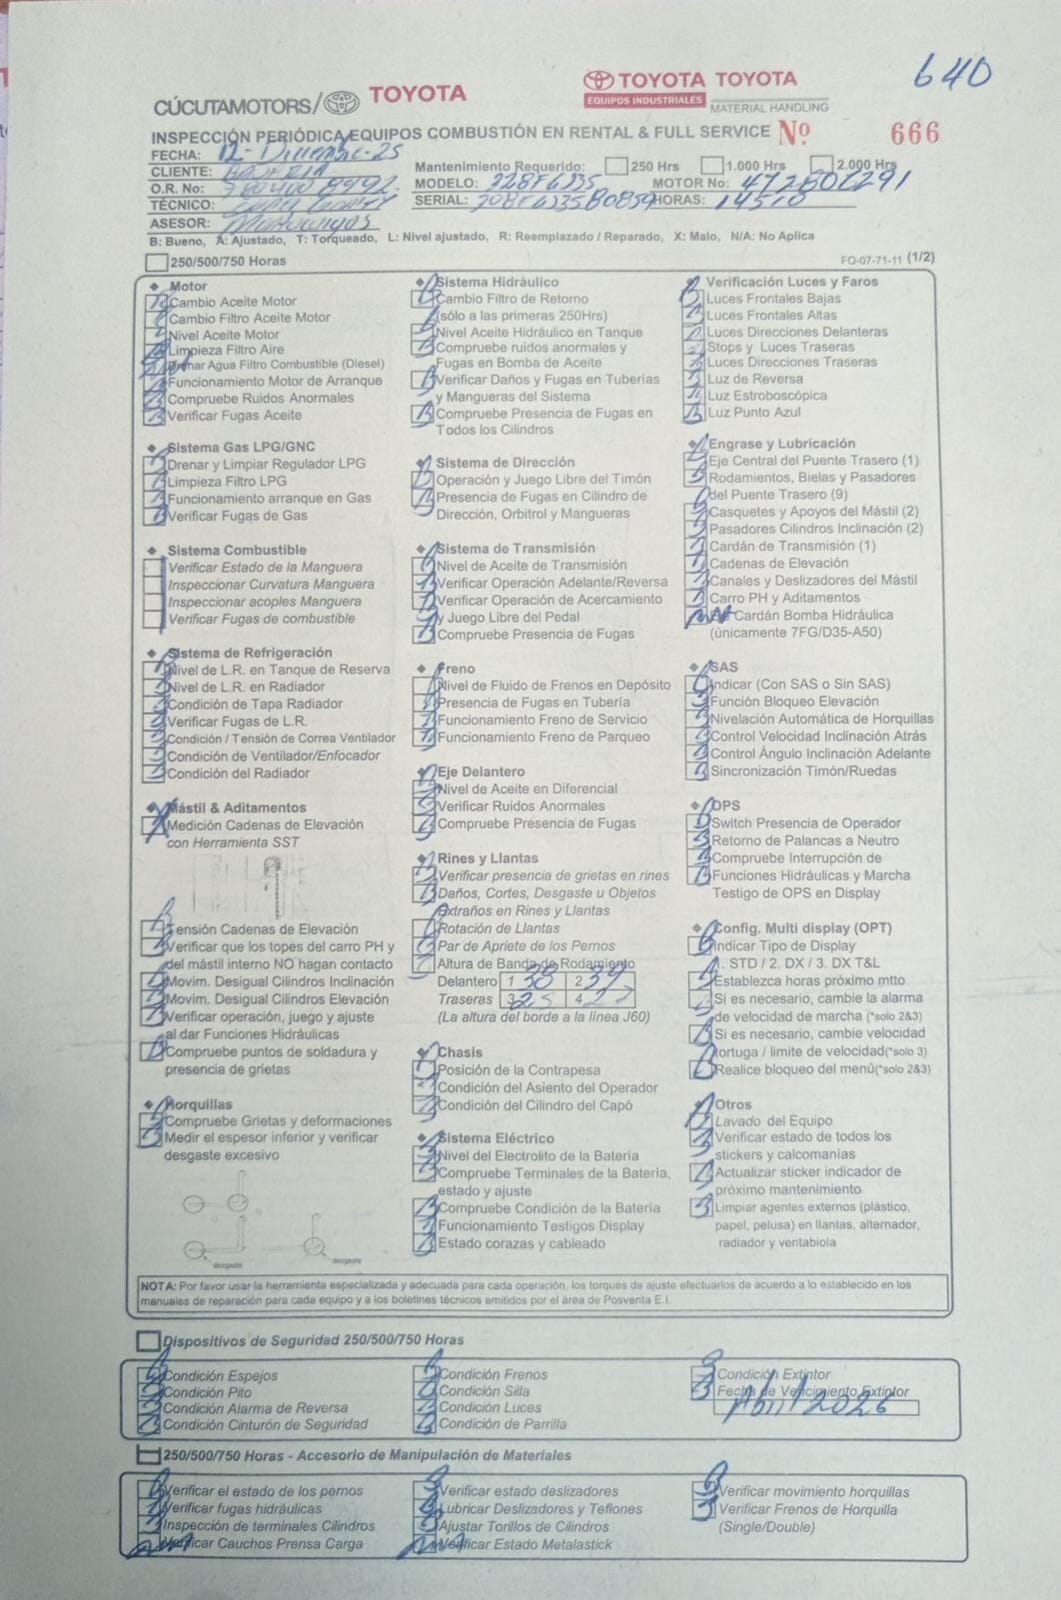 640
CÚCUTAMOTORS/ TOYOTA
TOYOTA TOYOTA
EQUIPOS INDUSTRIALES MATERIAL HANDLING
INSPECCIÓN PERIÓDICA EQUIPOS COMBUSTIÓN EN RENTAL & FULL SERVICE Nº 666
FECHA: 12-Diciembre-25
CLIENTE:
Mantenimiento Requerido: 250 Hrs 1.000 Hrs 2.000 Hrs
O.R. No:
MODELO: MOTOR No:
TÉCNICO:
SERIAL: HORAS: 14510
ASESOR:
B: Bueno, A: Ajustado, T: Torqueado, L: Nivel ajustado, R: Reemplazado / Reparado, X: Malo, N/A: No Aplica
250/500/750 Horas
FO-07-71-11 (1/2)
Motor
B Cambio Aceite Motor
Cambio Filtro Aceite Motor
Nivel Aceite Motor
Limpieza Filtro Aire
Drenar Agua Filtro Combustible (Diesel)
Funcionamiento Motor de Arranque
B Compruebe Ruidos Anormales
B Verificar Fugas Aceite
Sistema Gas LPG/GNC
Drenar y Limpiar Regulador LPG
Limpieza Filtro LPG
Funcionamiento arranque en Gas
B Verificar Fugas de Gas
Sistema Combustible
Verificar Estado de la Manguera
Inspeccionar Curvatura Manguera
Inspeccionar acoples Manguera
Verificar Fugas de combustible
Sistema de Refrigeración
Nivel de L.R. en Tanque de Reserva
Nivel de L.R. en Radiador
Condición de Tapa Radiador
Verificar Fugas de L.R.
Condición / Tensión de Correa Ventilador
Condición de Ventilador/Enfocador
Condición del Radiador
Mástil & Aditamentos
X Medición Cadenas de Elevación
con Herramienta SST
Tensión Cadenas de Elevación
Verificar que los topes del carro PH y
del mástil interno NO hagan contacto
Movim. Desigual Cilindros Inclinación
Movim. Desigual Cilindros Elevación
Verificar operación, juego y ajuste
al dar Funciones Hidráulicas
B Compruebe puntos de soldadura y
presencia de grietas
Horquillas
Compruebe Grietas y deformaciones
B Medir el espesor inferior y verificar
desgaste excesivo
desgaste
desgaste
Sistema Hidráulico
Cambio Filtro de Retorno
(sólo a las primeras 250Hrs)
Nivel Aceite Hidráulico en Tanque
Compruebe ruidos anormales y
Fugas en Bomba de Aceite
B Verificar Daños y Fugas en Tuberías
y Mangueras del Sistema
B Compruebe Presencia de Fugas en
Todos los Cilindros
Sistema de Dirección
Operación y Juego Libre del Timón
B Presencia de Fugas en Cilindro de
Dirección, Orbitrol y Mangueras
Sistema de Transmisión
Nivel de Aceite de Transmisión
Verificar Operación Adelante/Reversa
Verificar Operación de Acercamiento
y Juego Libre del Pedal
B Compruebe Presencia de Fugas
Freno
Nivel de Fluido de Frenos en Depósito
Presencia de Fugas en Tubería
Funcionamiento Freno de Servicio
Funcionamiento Freno de Parqueo
Eje Delantero
Nivel de Aceite en Diferencial
Verificar Ruidos Anormales
Compruebe Presencia de Fugas
Rines y Llantas
Verificar presencia de grietas en rines
Daños, Cortes, Desgaste u Objetos
Extraños en Rines y Llantas
Rotación de Llantas
Par de Apriete de los Pernos
Altura de Banda de Rodamiento
Delantero 1 38 2 39
Traseras 3 25 4 27
(La altura del borde a la línea J60)
Chasis
Posición de la Contrapesa
Condición del Asiento del Operador
Condición del Cilindro del Capó
Sistema Eléctrico
Nivel del Electrolito de la Batería
Compruebe Terminales de la Batería,
estado y ajuste
Compruebe Condición de la Batería
Funcionamiento Testigos Display
B Estado corazas y cableado
Verificación Luces y Faros
B Luces Frontales Bajas
Luces Frontales Altas
Luces Direcciones Delanteras
Stops y Luces Traseras
Luces Direcciones Traseras
Luz de Reversa
Luz Estroboscópica
B Luz Punto Azul
Engrase y Lubricación
Eje Central del Puente Trasero (1)
Rodamientos, Bielas y Pasadores
del Puente Trasero (9)
Casquetes y Apoyos del Mástil (2)
Pasadores Cilindros Inclinación (2)
Cardán de Transmisión (1)
Cadenas de Elevación
Canales y Deslizadores del Mástil
Carro PH y Aditamentos
Eje Cardán Bomba Hidráulica
(únicamente 7FG/D35-A50)
SAS
Indicar (Con SAS o Sin SAS)
Función Bloqueo Elevación
Nivelación Automática de Horquillas
Control Velocidad Inclinación Atrás
Control Ángulo Inclinación Adelante
B Sincronización Timón/Ruedas
OPS
Switch Presencia de Operador
Retorno de Palancas a Neutro
Compruebe Interrupción de
B Funciones Hidráulicas y Marcha
Testigo de OPS en Display
Config. Multi display (OPT)
B Indicar Tipo de Display
1. STD / 2. DX / 3. DX T&L
Establezca horas próximo mtto
Si es necesario, cambie la alarma
de velocidad de marcha (*solo 2&3)
Si es necesario, cambie velocidad
tortuga / limite de velocidad(*solo 3)
B Realice bloqueo del menú(*solo 2&3)
Otros
Lavado del Equipo
Verificar estado de todos los
stickers y calcomanías
Actualizar sticker indicador de
próximo mantenimiento
B Limpiar agentes externos (plástico,
papel, pelusa) en llantas, alternador,
radiador y ventabiola
NOTA: Por favor usar la herramienta especializada y adecuada para cada operación, los torques de ajuste efectuarlos de acuerdo a lo establecido en los
manuales de reparación para cada equipo y a los boletines técnicos emitidos por el área de Posventa E.I.
Dispositivos de Seguridad 250/500/750 Horas
Condición Espejos
Condición Pito
Condición Alarma de Reversa
Condición Cinturón de Seguridad
Condición Frenos
Condición Silla
Condición Luces
Condición de Parrilla
Condición Extintor
Fecha de Vencimiento Extintor
Abril 2026
250/500/750 Horas - Accesorio de Manipulación de Materiales
Verificar el estado de los pernos
Verificar fugas hidráulicas
Inspección de terminales Cilindros
Verificar Cauchos Prensa Carga
Verificar estado deslizadores
Lubricar Deslizadores y Teflones
Ajustar Torillos de Cilindros
Verificar Estado Metalastick
Verificar movimiento horquillas
Verificar Frenos de Horquilla
(Single/Double)